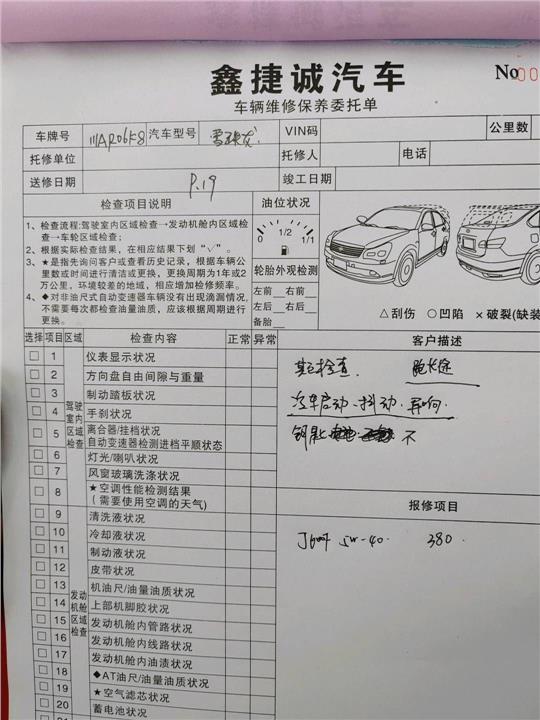 鑫捷诚汽车
No 00
车辆维修保养委托单
车牌号 川AR06K8 汽车型号 VIN码 公里数
托修单位 托修人 电话
送修日期 竣工日期
检查项目说明 油位状况
1、检查流程:驾驶室内区域检查→发动机舱内区域检查→车轮区域检查;
2、根据实际检查结果,在相应结果下划“√”。
3、★是指先询问客户或查看历史记录,根据车辆公里数或时间进行清洁或更换,更换周期为1年或2万公里,环境较差的地域,相应增加检修频率。
4、◆对非油尺式自动变速器车辆没有出现滴漏情况,不需要每次都检查油量油质,应该根据周期进行更换。
0 1/2 1/1
轮胎外观检测
左前 右前
左后 右后
备胎
△刮伤 ○凹陷 ×破裂(缺装
选择 项目 区域 检查内容 正常 异常
客户描述
驾驶室内区域检查
1 仪表显示状况
2 方向盘自由间隙与重量
3 制动踏板状况
4 手刹状况
5 离合器/挂档状况
自动变速器检测进档平顺状态
6 灯光/喇叭状况
7 风窗玻璃洗涤状况
8 ★空调性能检测结果
(需要使用空调的天气)
检查. 跑长途
汽车启动.抖动.异响.
钥匙 不
报修项目
5w-40 380.
发动机舱区域检查
9 清洗液状况
10 冷却液状况
11 制动液状况
12 皮带状况
13 机油尺/油量油质状况
14 上部机脚胶状况
15 发动机舱内管路状况
16 发动机舱内线路状况
17 发动机舱内油渍状况
18 ◆AT油尺/油量油质状况
19 ★空气滤芯状况
20 蓄电池状况